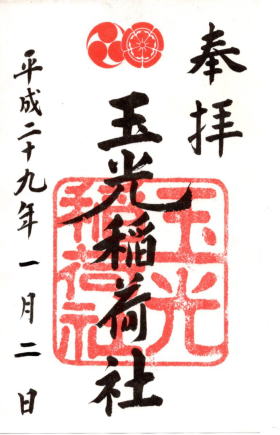 奉拝
玉光稲荷社
玉光
稲荷社
平成二十九年一月二日